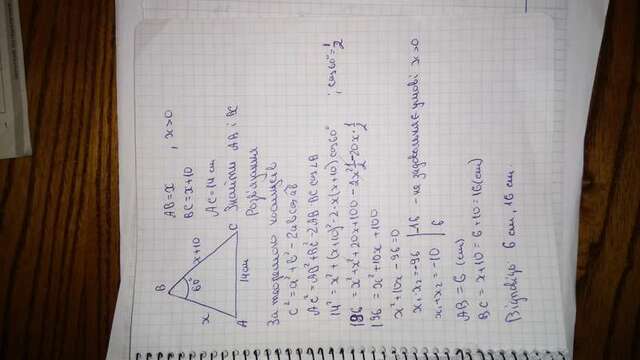 B
60°
x
x+10
A
14 cm
C
AB = x , x>0
BC = x+10
AC = 14 cm
Знайти AB і BC
Розв'язання
За теоремою косинусів
c² = a² + b² - 2ab cos ab
AC² = AB² + BC² - 2AB·BC cos∠B
14² = x² + (x+10)² - 2·x(x+10) cos60° ; cos60° = 1/2
196 = x² + x² + 20x + 100 - 2x²·1/2 - 20x·1/2
196 = x² + 10x + 100
x² + 10x - 96 = 0
x₁x₂ = -96 | -16 - не задовольняє умові x>0
x₁+x₂ = -10 | 6
AB = 6 (cm)
BC = x+10 = 6+10 = 16 (cm)
Відповідь 6 cm, 16 cm.